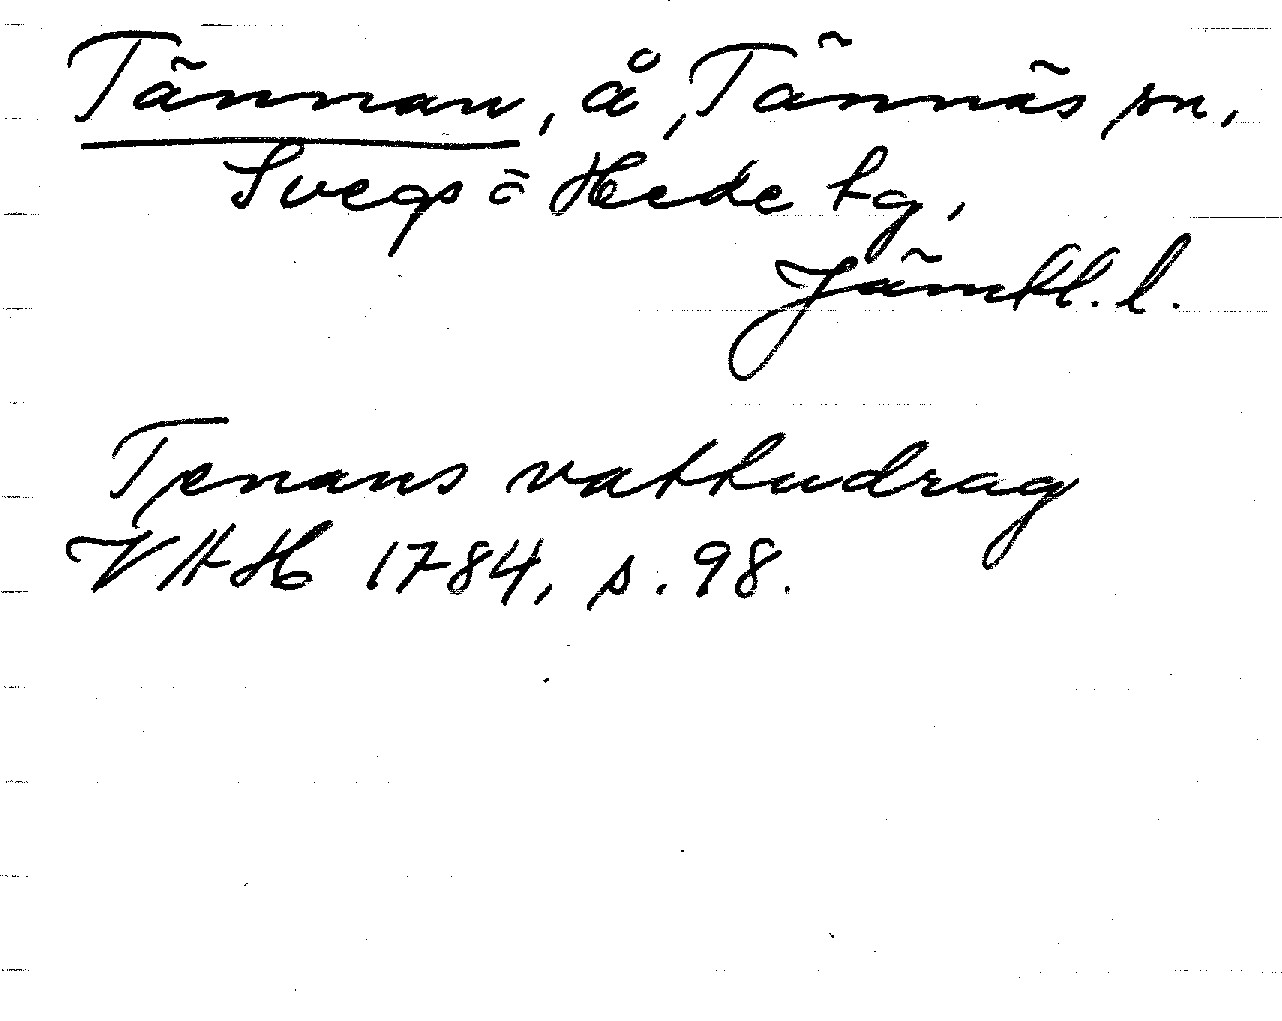 Tännan, å, Tännäs sn,
Svegs o Hede tg,
Jämtl. l.
Tenans vattudrag
VAH 1784, s. 98.